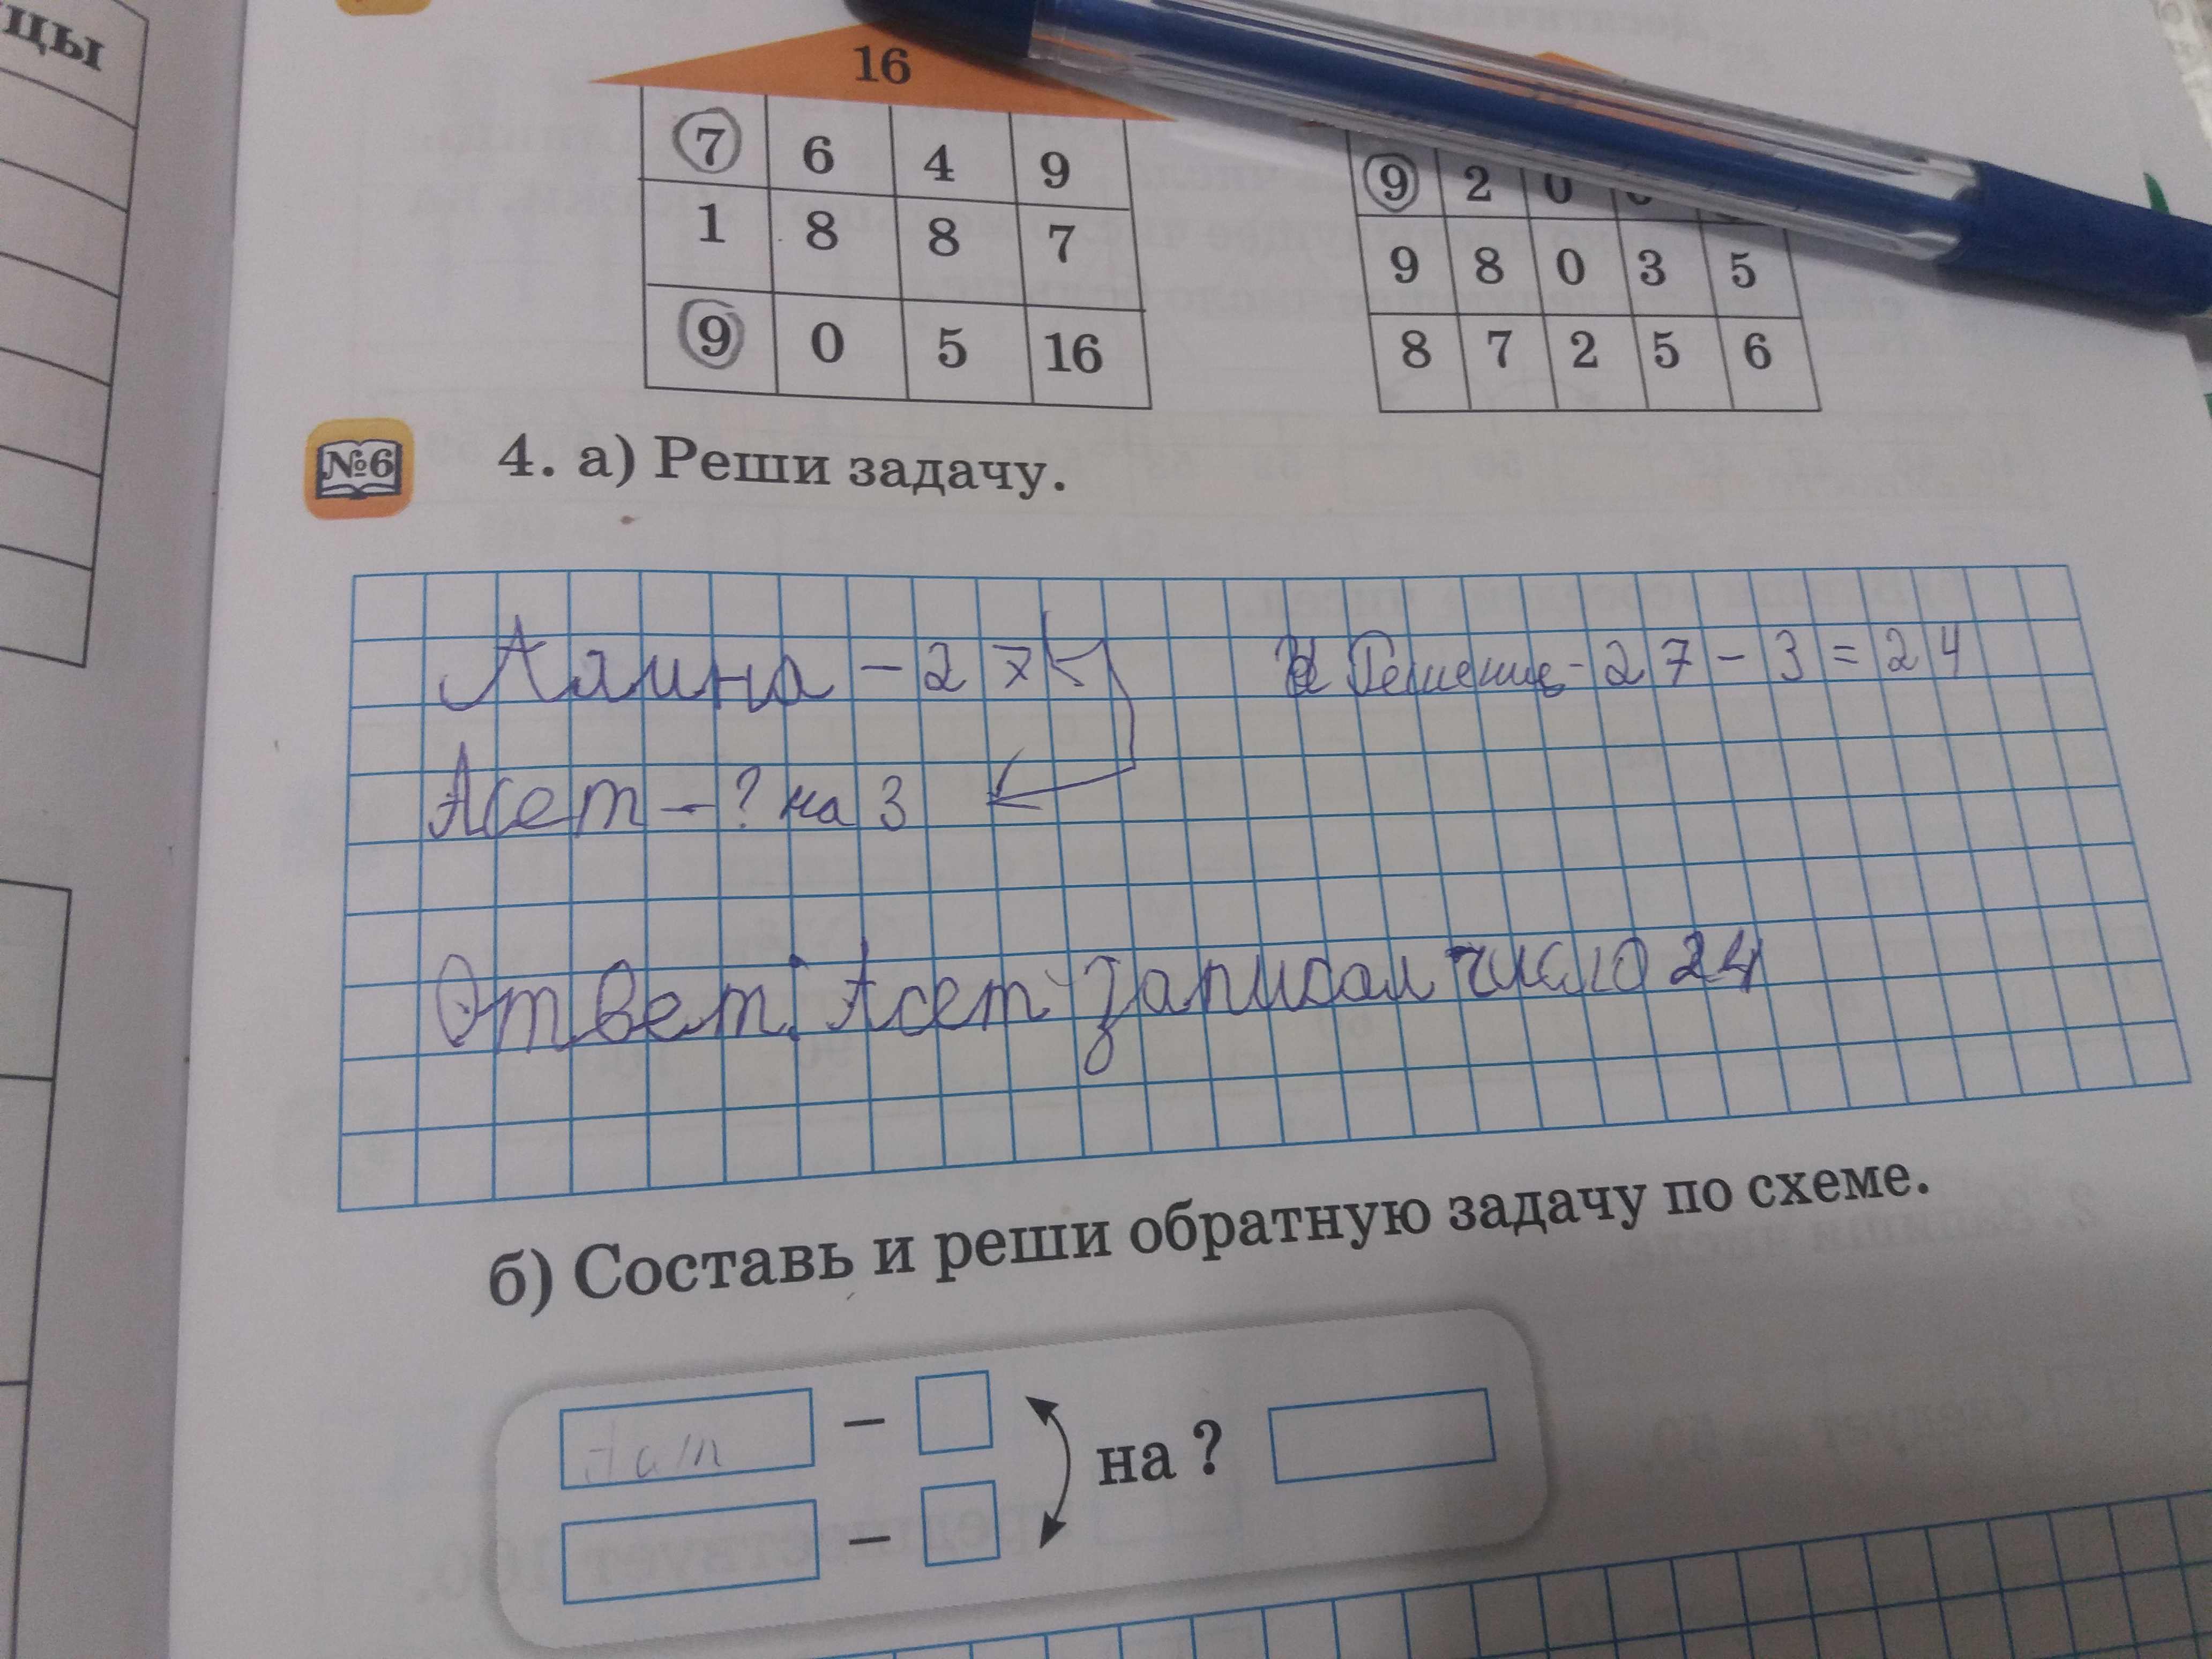 цы
16
7 6 4 9
1 8 8 7
9 0 5 16
9 2 0
9 8 0 3 5
8 7 2 5 6
№6
4. а) Реши задачу.
Алина – 27
Решение - 27 – 3 = 24
Асет – ? на 3
Ответ: Асет записал число 24
б) Составь и реши обратную задачу по схеме.
–
на ?
–